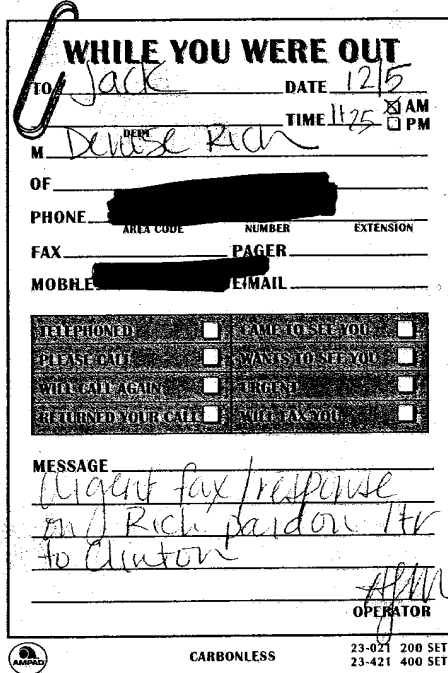 WHILE YOU WERE OUT
TO Jack DATE 12/5
TIME 11:25 ☒ AM
☐ PM
DEPT
M Denise Rich
OF
PHONE
AREA CODE NUMBER EXTENSION
FAX PAGER
MOBILE E-MAIL
TELEPHONED CAME TO SEE YOU
PLEASE CALL WANTS TO SEE YOU
WILL CALL AGAIN URGENT
RETURNED YOUR CALL WILL FAX YOU
MESSAGE
Urgent fax/response
on Rich pardon ltr
to Clinton
AJM
OPERATOR
AMPAD CARBONLESS 23-021 200 SET
23-421 400 SET